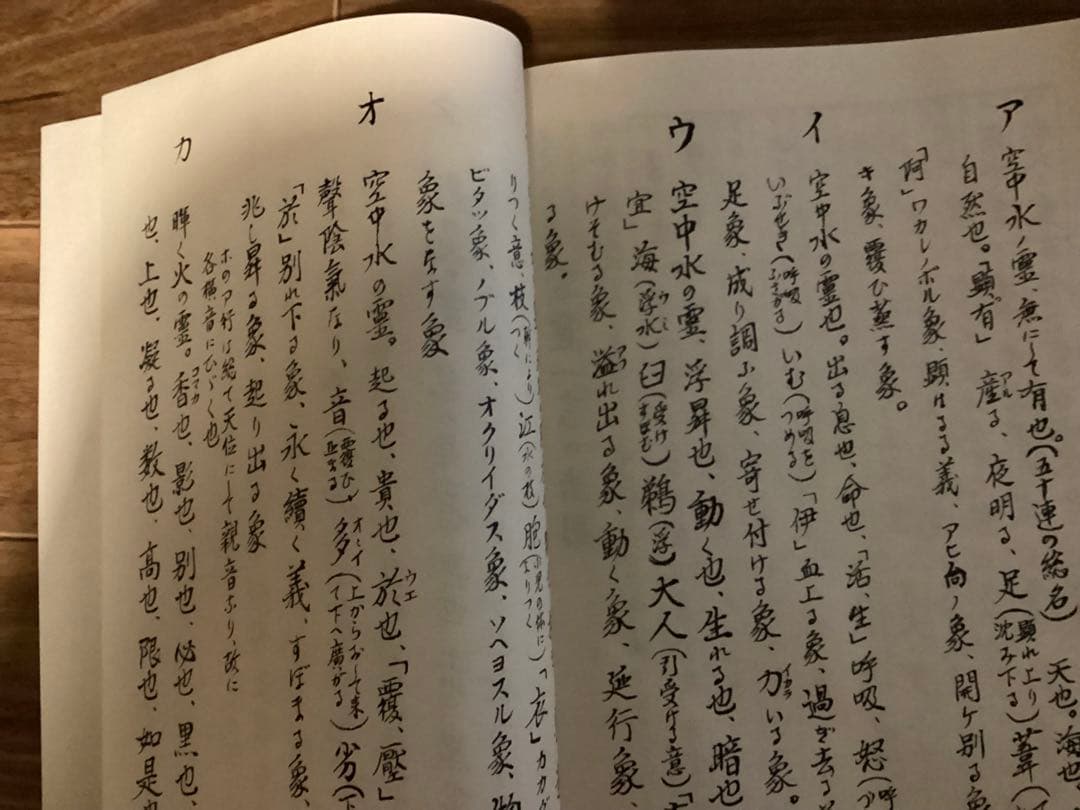 ア 空中水ノ靈、無にして有也。(五十連の総名) 天也。海也
自然也。「顕有」 産る、夜明る、足(顕れ上り 沈み下る)葦(
「阿」ワカレノボル象、顕はるる義、アヒ向ノ象、開ケ別る象
キ象、覆ひ蒸す象。
イ 空中水の靈也。出る息也、命也、「活、生」呼吸、怒(
いぶせき(呼吸ふさがる)いむ(呼吸をつめる)「伊」血上る象、過ぎ去る
足象、成り調ふ象、寄せ付ける象、力いる象。
ウ 空中水の靈、浮昇也、動く也、生れる也、暗也
宜」海(浮水)臼(受けすぼむ)鵜(浮)大人(引受ける意)「
けそむる象、溢れ出る象、動くノ象、延行象、
る象。
りつく意、枝(つく)江(水の枝)胞(小児の体にまりつく)「衣」カカ
ビタツ象、ノブル象、オクリイダス象、ソヘヨスル象、
象をなす象
オ 空中水の靈。起る也、貴也、於也、「覆、壓」
聲陰氣なり、音(覆ひ)多(上からおして来て下へ廣がる)劣(下
「於」別れ下る象、永く續く義、すぼまる象、
兆し昇る象、起り出る象
ホのア行は総て天位にして親音なり、故に
各横音にひゞく也
カ 暉く火の靈。香也、影也、別也、必也、黒也、
也、上也、凝る也、数也、高也、限也、如是也